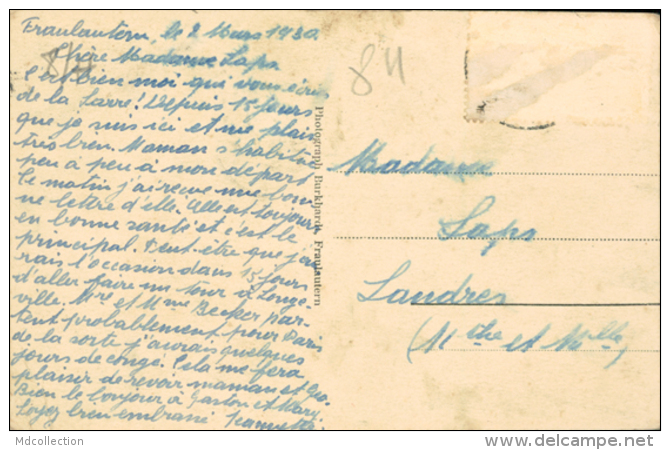 Fraulautern, le 2 Mars 1930.
Chère Madame Laps
C'est bien moi qui vous écris
de la Sarre! Depuis 15 jours
que je suis ici et me plais
très bien. Maman s'habitue
peu à peu à mon départ
Ce matin j'ai recue une bon
ne lettre d'elle. Elle est toujours
en bonne santé et c'est le
principal. Peut-être que j'au
rais l'occasion dans 15 jours
d'aller faire un tour à Longe
ville. Mr et Mme Becker par-
tent probablement pour Paris
de la sorte j'aurais quelques
jours de congé. Cela me fera
plaisir de revoir maman et
Bien le bonjour à Gaston et
Soyez bien embrassé Jeannette.
84
84
Photograph Burkhardt, Fraulautern
Madame
Laps
Landres
(Mthe et Mlle)
Mdcollection
www.delcampe.net